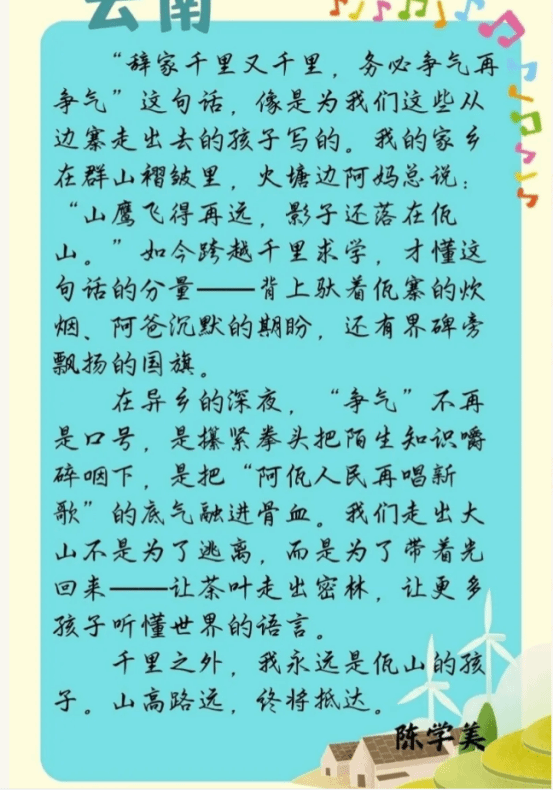 云南
“辞家千里又千里，务必争气再
争气”这句话，像是为我们这些从
边寨走出去的孩子写的。我的家乡
在群山褶皱里，火塘边阿妈总说：
“山鹰飞得再远，影子还落在佤
山。”如今跨越千里求学，才懂这
句话的分量——背上驮着佤寨的炊
烟、阿爸沉默的期盼，还有界碑旁
飘扬的国旗。
在异乡的深夜，“争气”不再
是口号，是攥紧拳头把陌生知识嚼
碎咽下，是把“阿佤人民再唱新
歌”的底气融进骨血。我们走出大
山不是为了逃离，而是为了带着光
回来——让茶叶走出密林，让更多
孩子听懂世界的语言。
千里之外，我永远是佤山的孩
子。山高路远，终将抵达。
陈学美